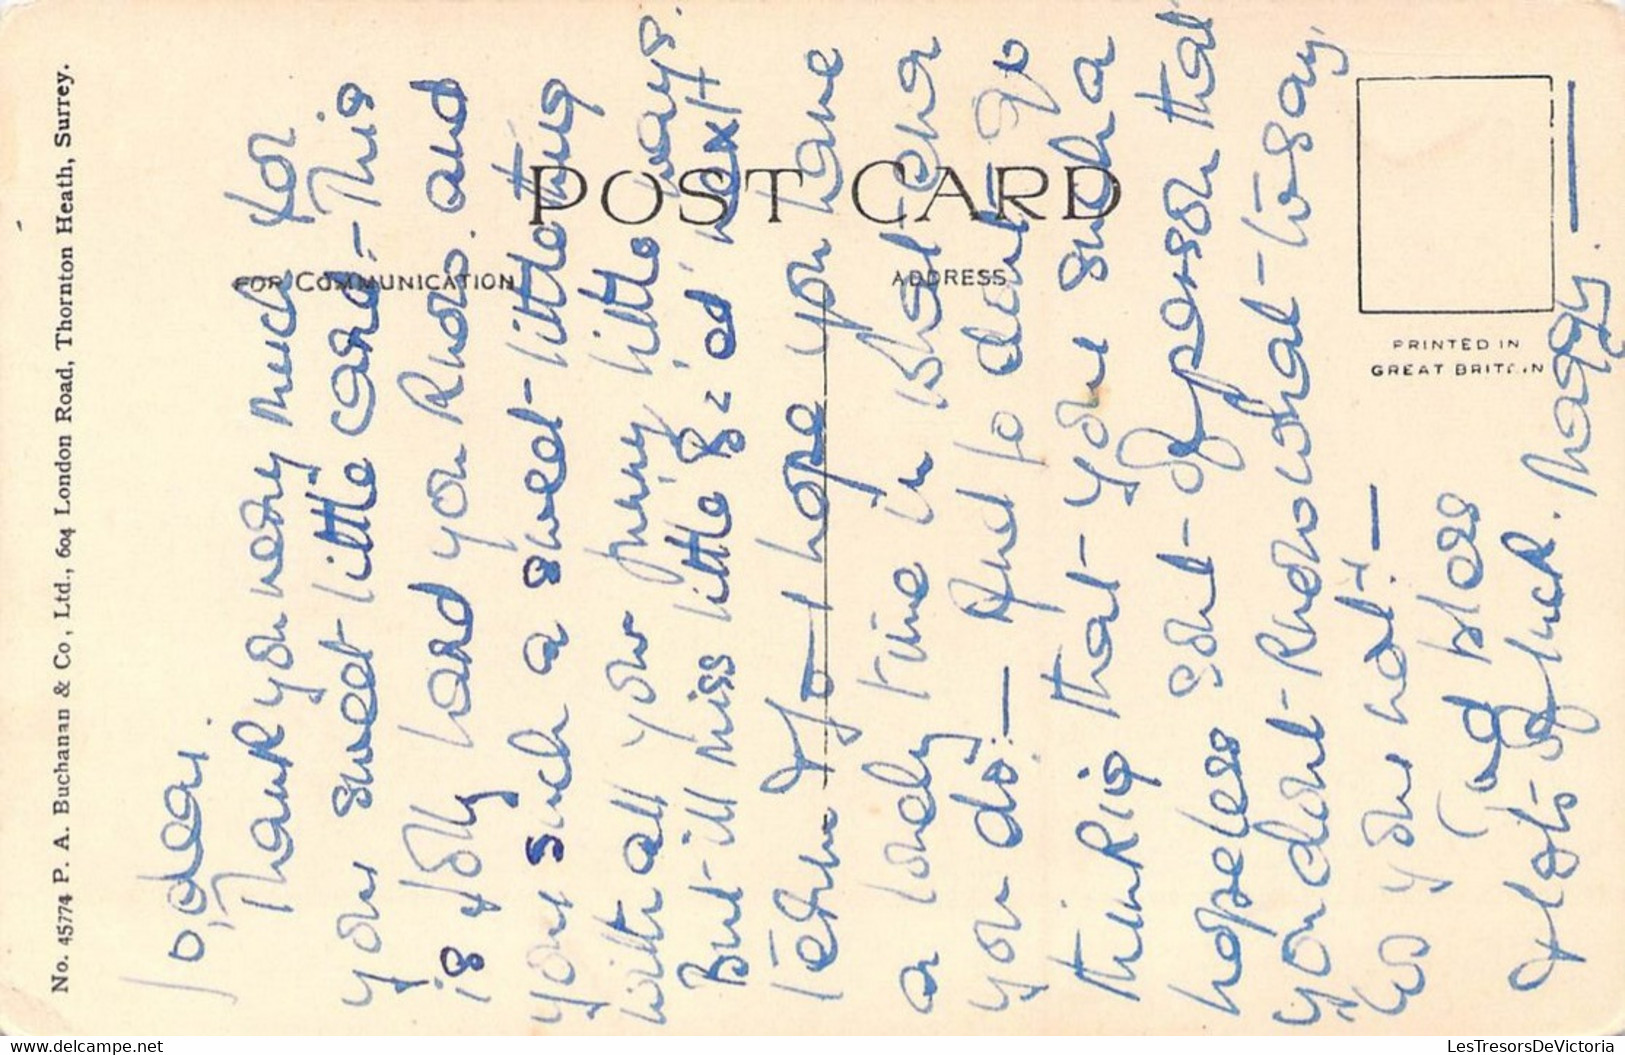 No. 45774 P. A. Buchanan & Co, Ltd., 604 London Road, Thornton Heath, Surrey.
POST CARD
FOR COMMUNICATION
ADDRESS
PRINTED IN
GREAT BRITAIN
dear.
Thank you very much for
your sweet little card - This
is jolly hard you know. and
your such a sweet little thing
with all your little ways.
But ill miss little next
term so I hope you have
a lovely time in what ever
you do. — And so dont go
thinkig that your such a
hopeless sort of person that
you dont know what to say
your not! —
God bless
& lots of luck. Maggy. —
delcampe.net
LesTresorsDeVictoria